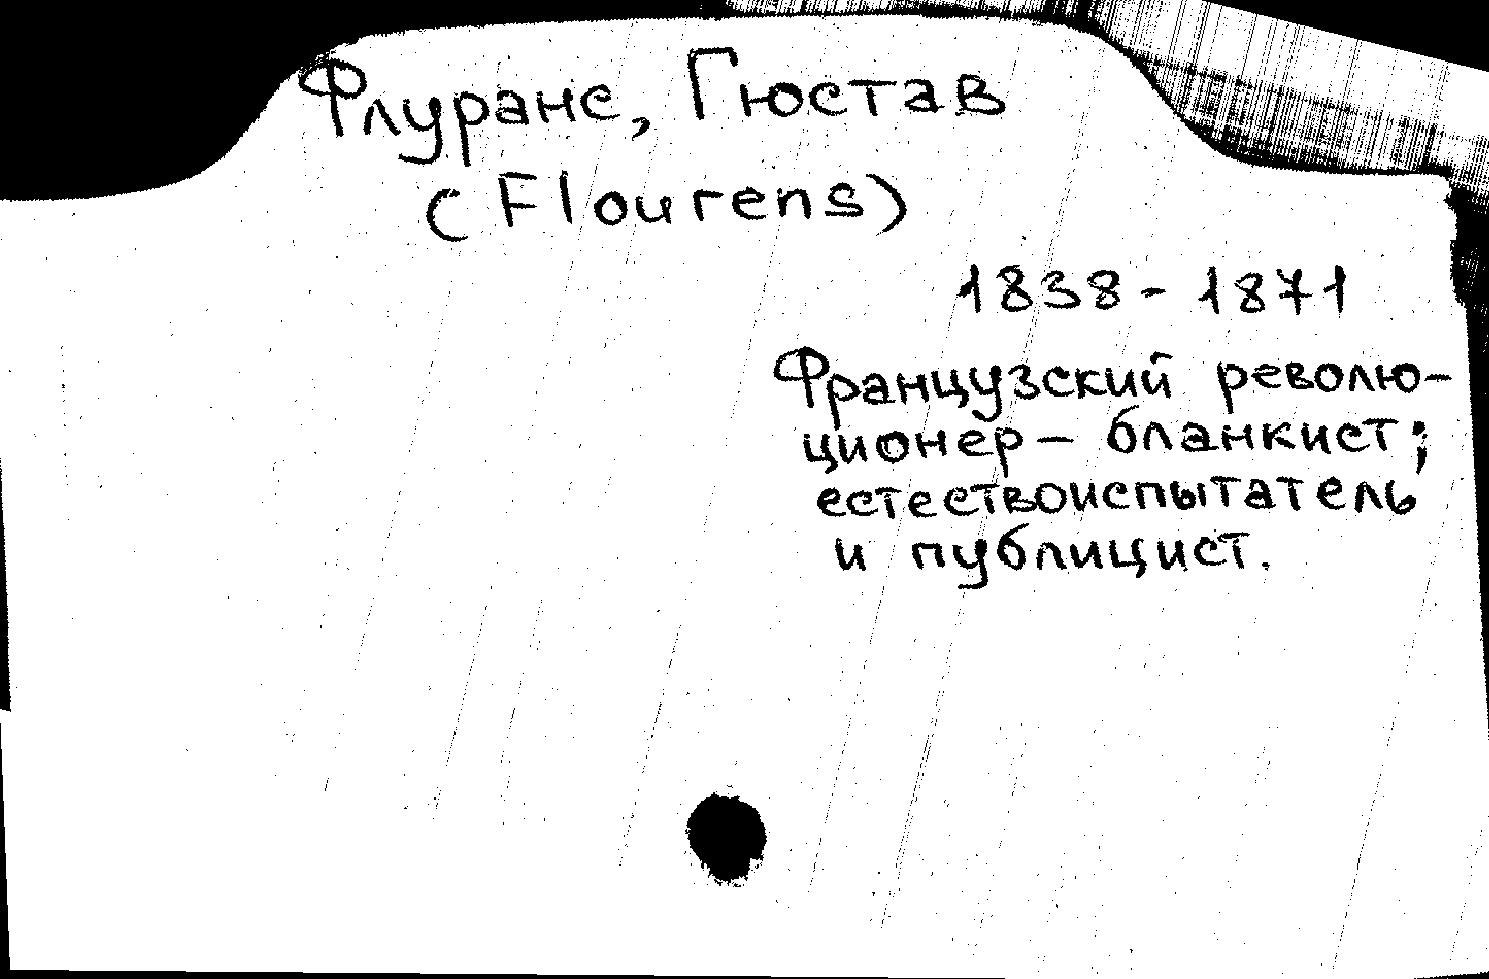 Флуранс, Гюстав
(Flourens)
1838 - 1871
Французский револю-
ционер - бланкист;
естествоиспытатель
и публицист.